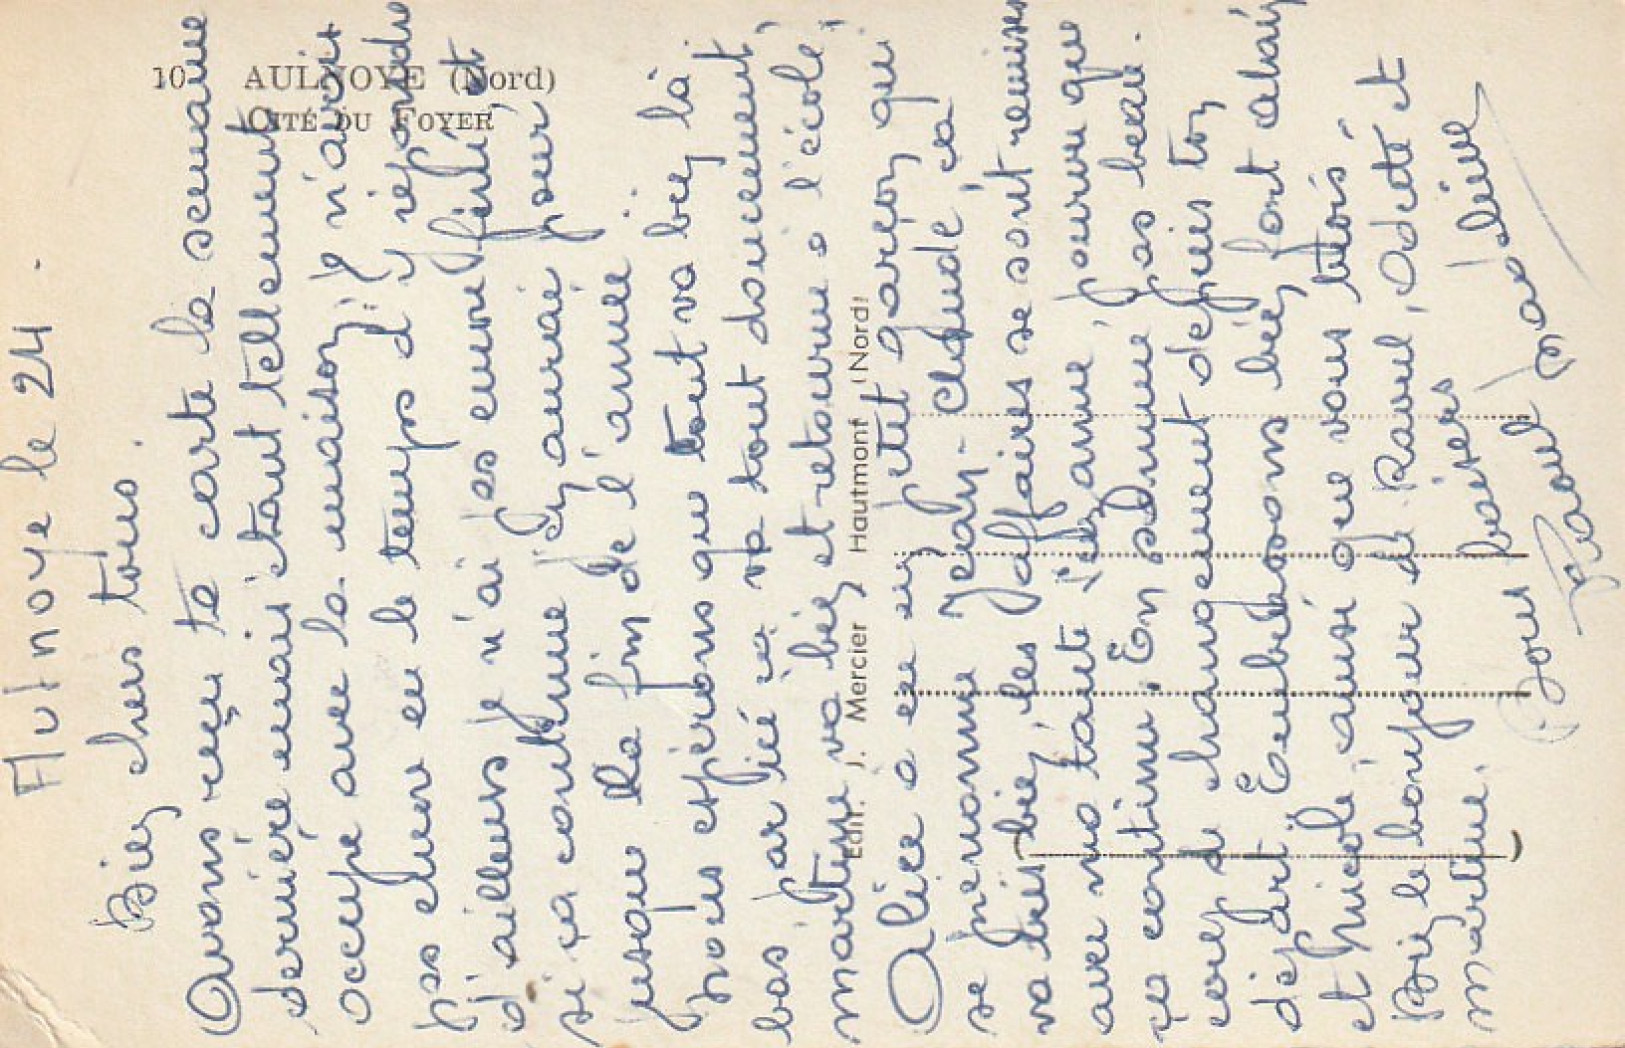 10 AULNOYE (Nord)
CITÉ DU FOYER
Edit. J. Mercier Hautmont (Nord)
Aulnoye le 24.
Bien chers tous.
Avons reçu ta carte la semaine
dernière mais étant tellement
occupé avec la maison, je n'avais
pas eu le temps d'y répondre
d'ailleurs je n'ai pas encore fini et
si ça continue j'y aurai pour
jusque la fin de l'année
Nous espérons que tout va bien là
bas, par ici ça va tout doucement,
martine va bien et retourne a l'école,
Alice a eu un petit garçon qui
se prénomme Jean-Claude ça
va bien, les affaires se sont remises
avec ma tante l'année, pourvu que
ça continu. En somme pas beau
coup de changement depuis ton
départ. Embrassons bien fort
et Nicole, ainsi que vous trois.
Bien le bonjour de Raoul, Odette et
martine.
Bons baisers
Raoul Madeleine